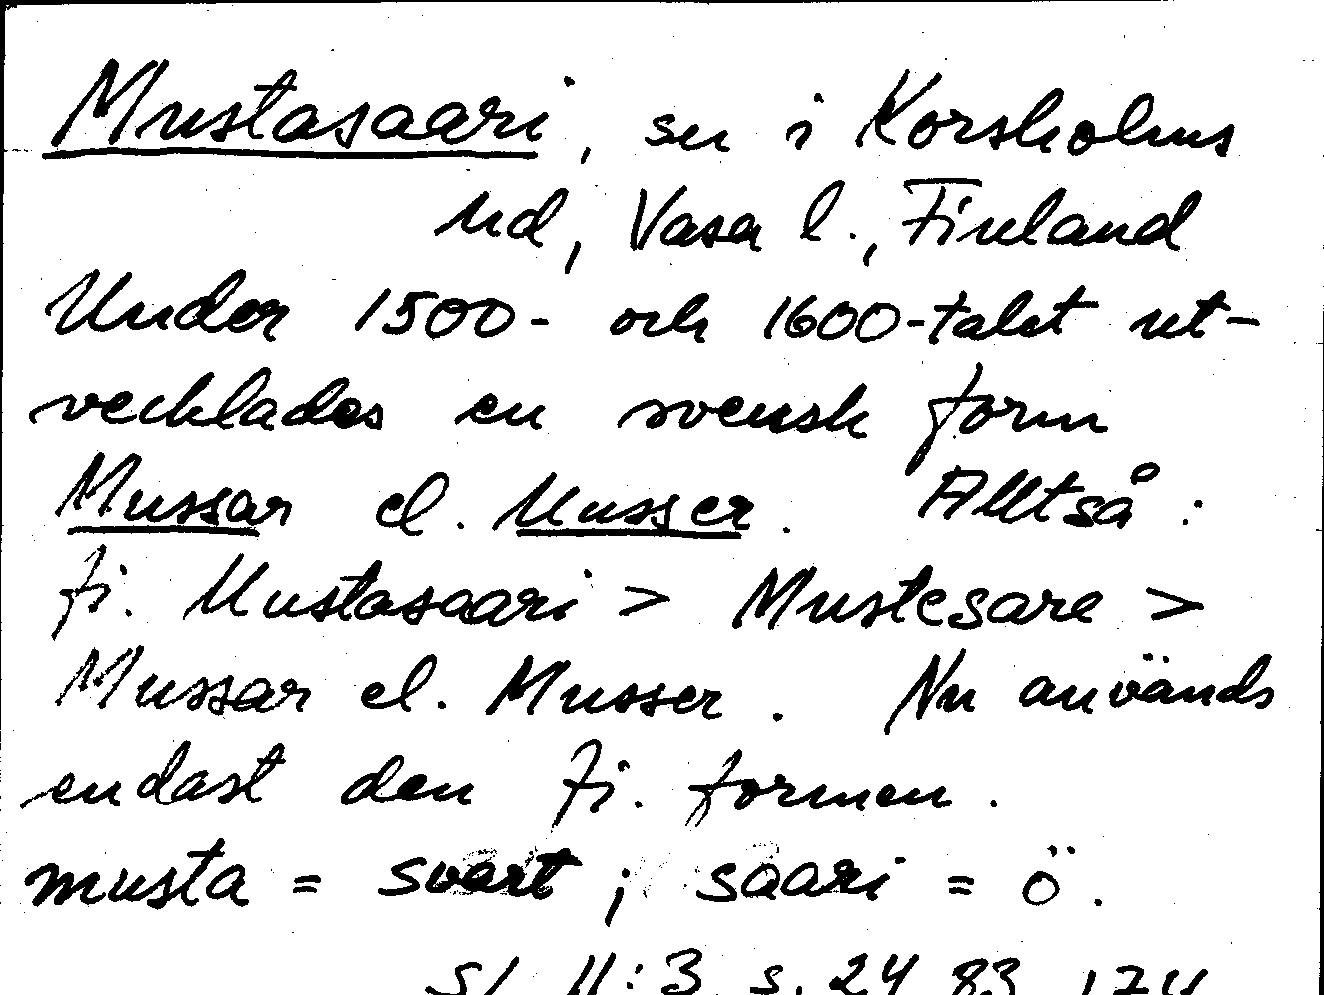 Mustasaari, sn i Korsholms
hd, Vasa l., Finland
Under 1500- och 1600-talet ut-
vecklades en svensk form
Mussar el. Musser. Alltså:
fi. Mustasaari > Mustesare >
Mussar el. Musser. Nu används
endast den fi. formen.
musta = svart; saari = ö.
s. 24, 83, 174